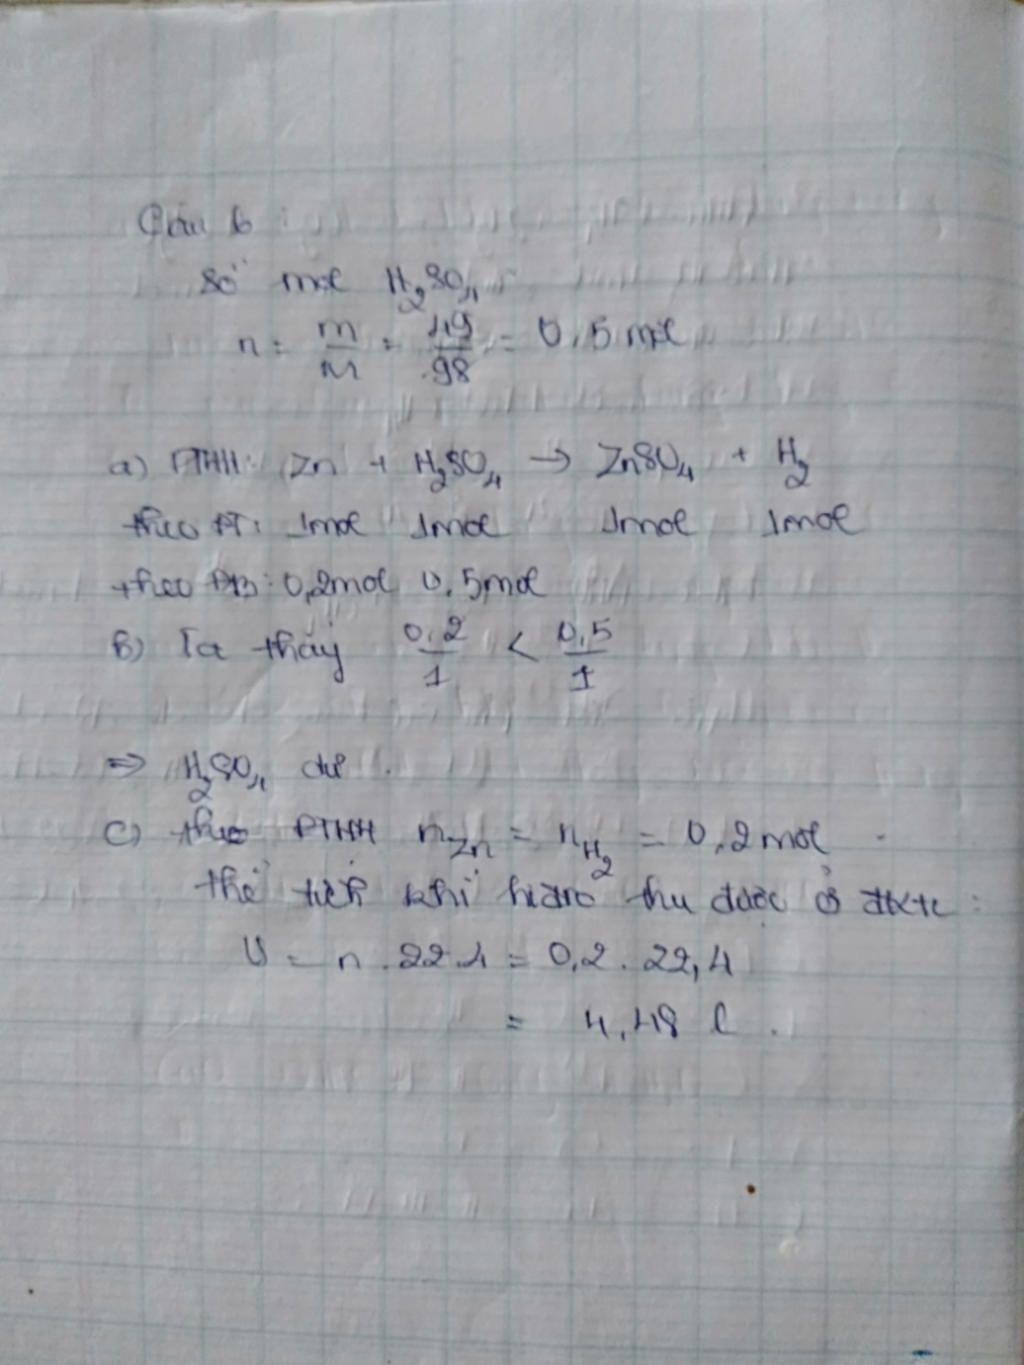 Câu 6 :
Số mol H₂SO₄
n = m/M = 49/98 = 0,5 mol
a) PTHH: Zn + H₂SO₄ → ZnSO₄ + H₂
theo PT: 1mol 1mol 1mol 1mol
theo ĐB: 0,2mol 0,5mol
b) Ta thấy 0,2/1 < 0,5/1
=> H₂SO₄ dư .
c) theo PTHH nZn = nH₂ = 0,2 mol
thể tích khí hiđro thu được ở đktc :
V = n . 22,4 = 0,2 . 22,4
= 4,48 l .